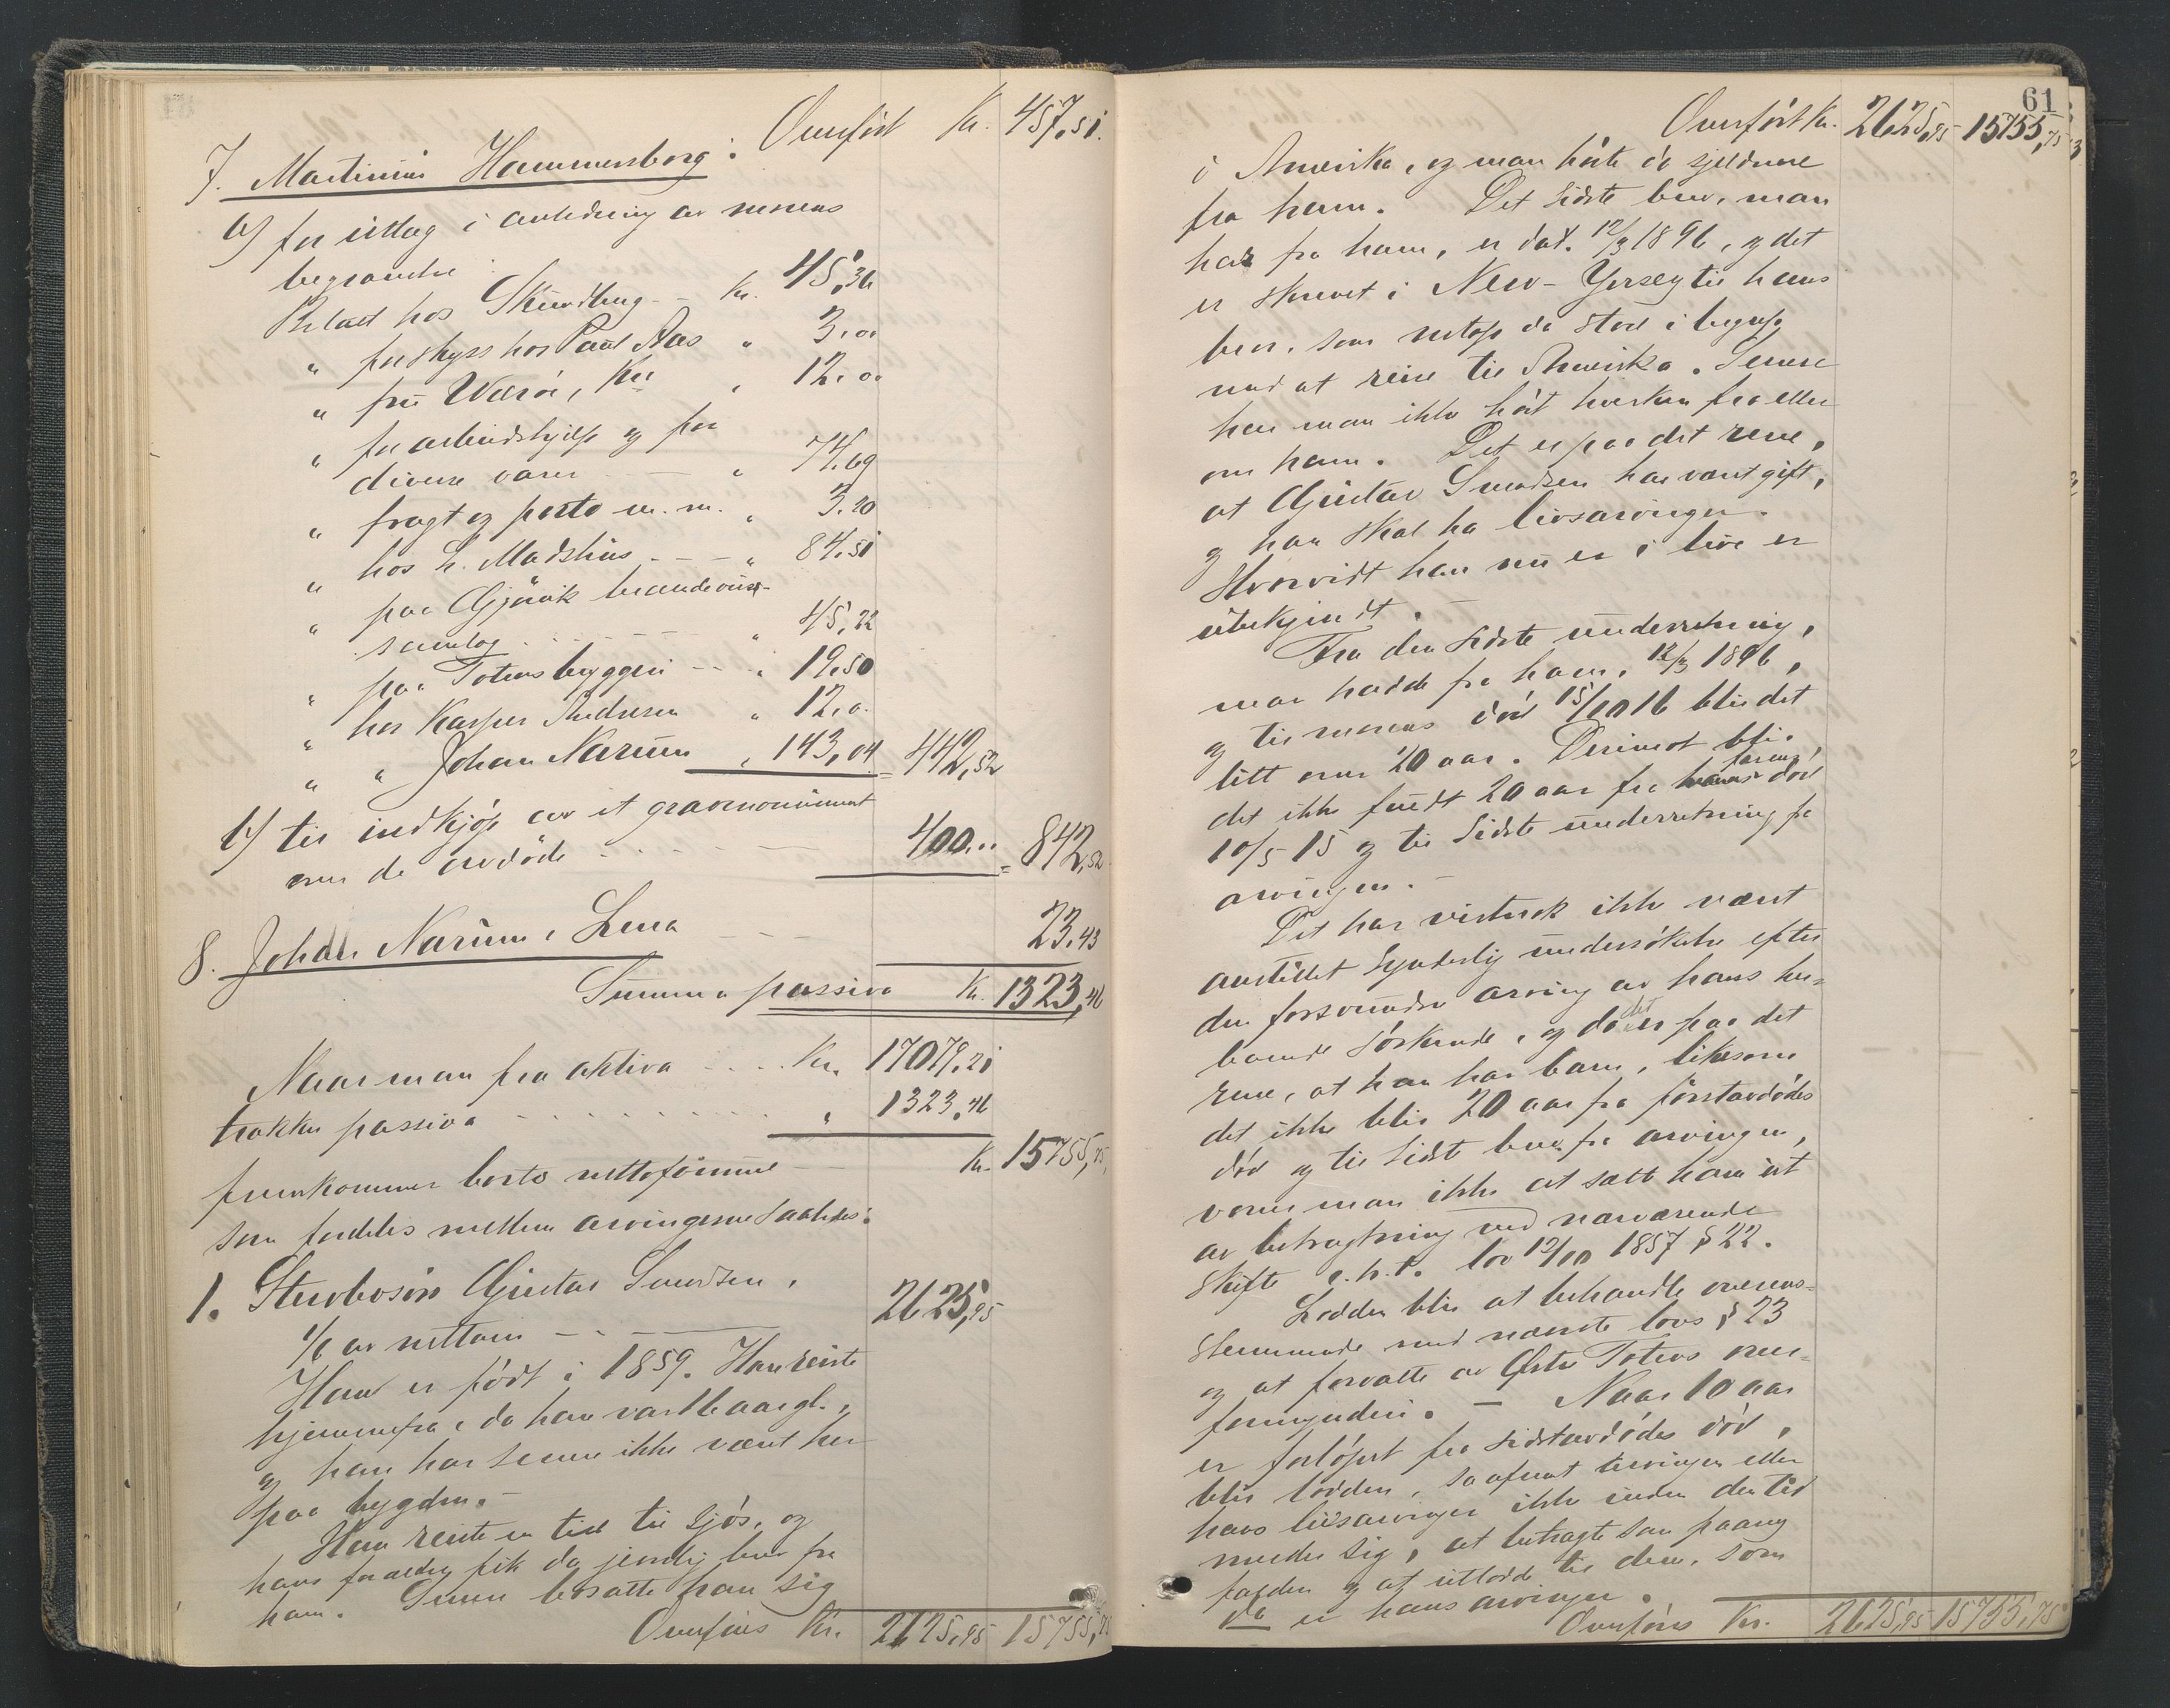 Overført Kr. 457,51.
7. Martinius Hammersborg:
a) for utlag i anledning av morens
begravelse:
Betalt hos Skundberg - - Kr. 45,36
" for skyss hos Paul Aas " 3,00
" fru Wærøe, Kra " 12,00
" for arbeidshjelp og for
diverse varer " 74,69
" fragt og porto m. m. " 3.20
" hos L. Madshus - - - " 84,51
" paa Gjøvik brændevins-
samlag " 45,22
" paa Totens bryggeri - - " 19,50
" hos Kasper Andresen " 12,0.
" " Johan Narum " 143,04 = 442,52
b) til indkjøp av et gravmonument
over de avdøde 400.00 = 842,52
8. Johan Narum, Lena 23,43
Summa passiva Kr. 1323,46
Naar man fra aktiva Kr. 17079,21
trækker passiva " 1323,46
fremkommer boets nettoformue Kr. 15755,75,
som fordeles mellem arvingerne saaledes:
1. Stervbosøn Gustav Smedsen,
1/6 av nettoen 2625,95
Han er født i 1859. Han reiste
hjemmefra, da han var 16 aar gl.,
og han har senere ikke været her
paa bygden.-
Han reiste en tid til sjøs, og
hans forældre fik da jevnlig brev fra
ham. Senere bosatte han sig
Overføres Kr. 2625,95 15755,75
61
Overført Kr. 2625,95 15755,75
i Amerika, og man hørte da sjeldnere
fra ham. Det sidste brev, man
har fra ham, er dat. 12/3 1896, og det
er skrevet i New-Yersey til hans
bror, som netop da stod i begrep
med at reise til Amerika. Senere
har man ikke hørt hverken fra eller
om ham. Det er paa det rene,
at Gustav Smedsen har været gift,
og han skal ha livsarvinger.
Hvorvidt han nu er i live er
ubekjendt.
Fra den sidste underretning,
man hadde fra ham, 12/3 1896,
og til morens død 15/10 16 blir det
litt over 20 aar. Derimot blir
det ikke fuldt 20 aar fra farens død
10/5 15 og til sidste underretning fra
arvingen.-
Det har vistnok ikke været
anstillet synderlig undersøkelse efter
den forsvundne arving av hans her-
boende søskende, og da det er paa det
rene, at han har barn, likesom
det ikke blir 20 aar fra førstavdødes
død og til sidst brev fra arvingen,
vover man ikke at sætte ham ut
av betragtning ved nærværende
skifte c. h. t. lov 12/10 1857 § 22.
Lodden blir at behandle overens-
stemmende med nævnte lovs § 23
og at forvalte av Østre Totens over-
formynderi. - Naar 10 aar
er forløpet fra sidstavdødes død,
blir lodden, saafremt arvingen eller
hans livsarvinger ikke inden den tid
melder sig, at betragte som paany
falden og at utlodde til dem, som
da er hans arvinger.
Overføres Kr. 2625,95 15755,75